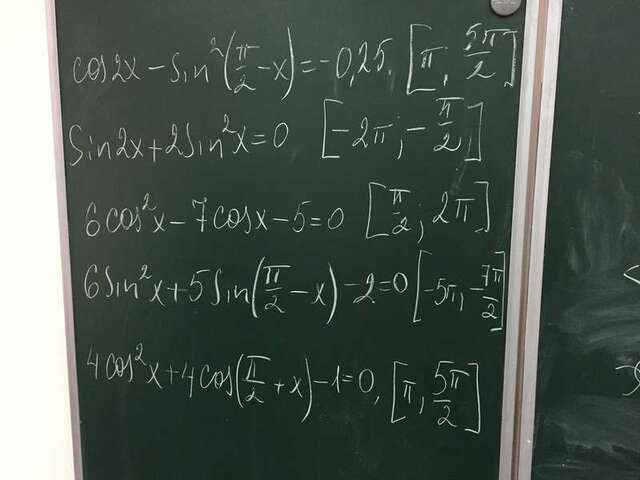 cos2x − sin²(π/2 − x) = −0,25, [π; 5π/2]
sin2x + 2sin²x = 0 [−2π; −π/2]
6cos²x − 7cosx − 5 = 0 [π/2; 2π]
6sin²x + 5sin(π/2 − x) − 2 = 0 [−5π, −7π/2]
4cos²x + 4cos(π/2 + x) − 1 = 0, [π, 5π/2]